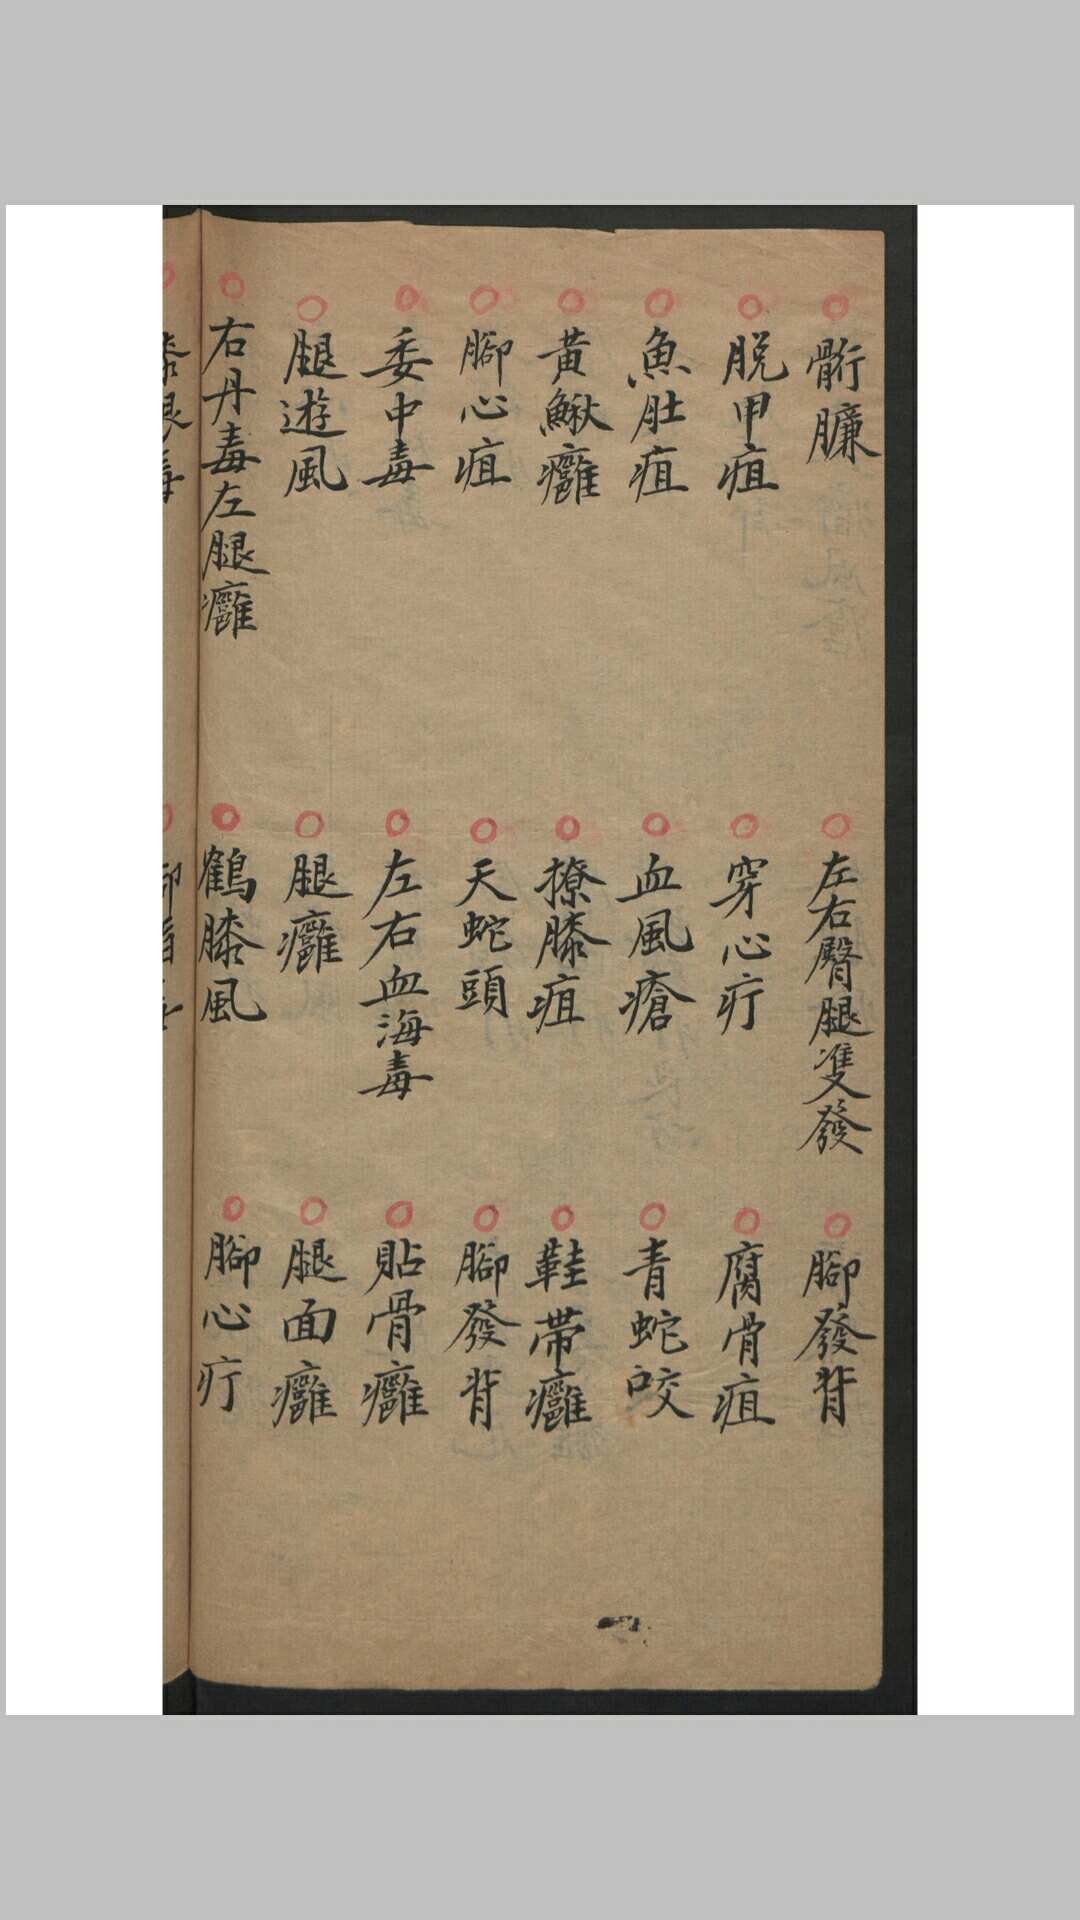 䯒臁
左右臀腿雙發
腳發背
脫甲疽
穿心疔
腐骨疽
魚肚疽
血風瘡
青蛇咬
黃鰍癰
撩膝疽
鞋帶癰
腳心疽
天蛇頭
腳發背
委中毒
左右血海毒
貼骨癰
腿遊風
腿癰
腿面癰
右丹毒左腿癰
鶴膝風
腳心疔